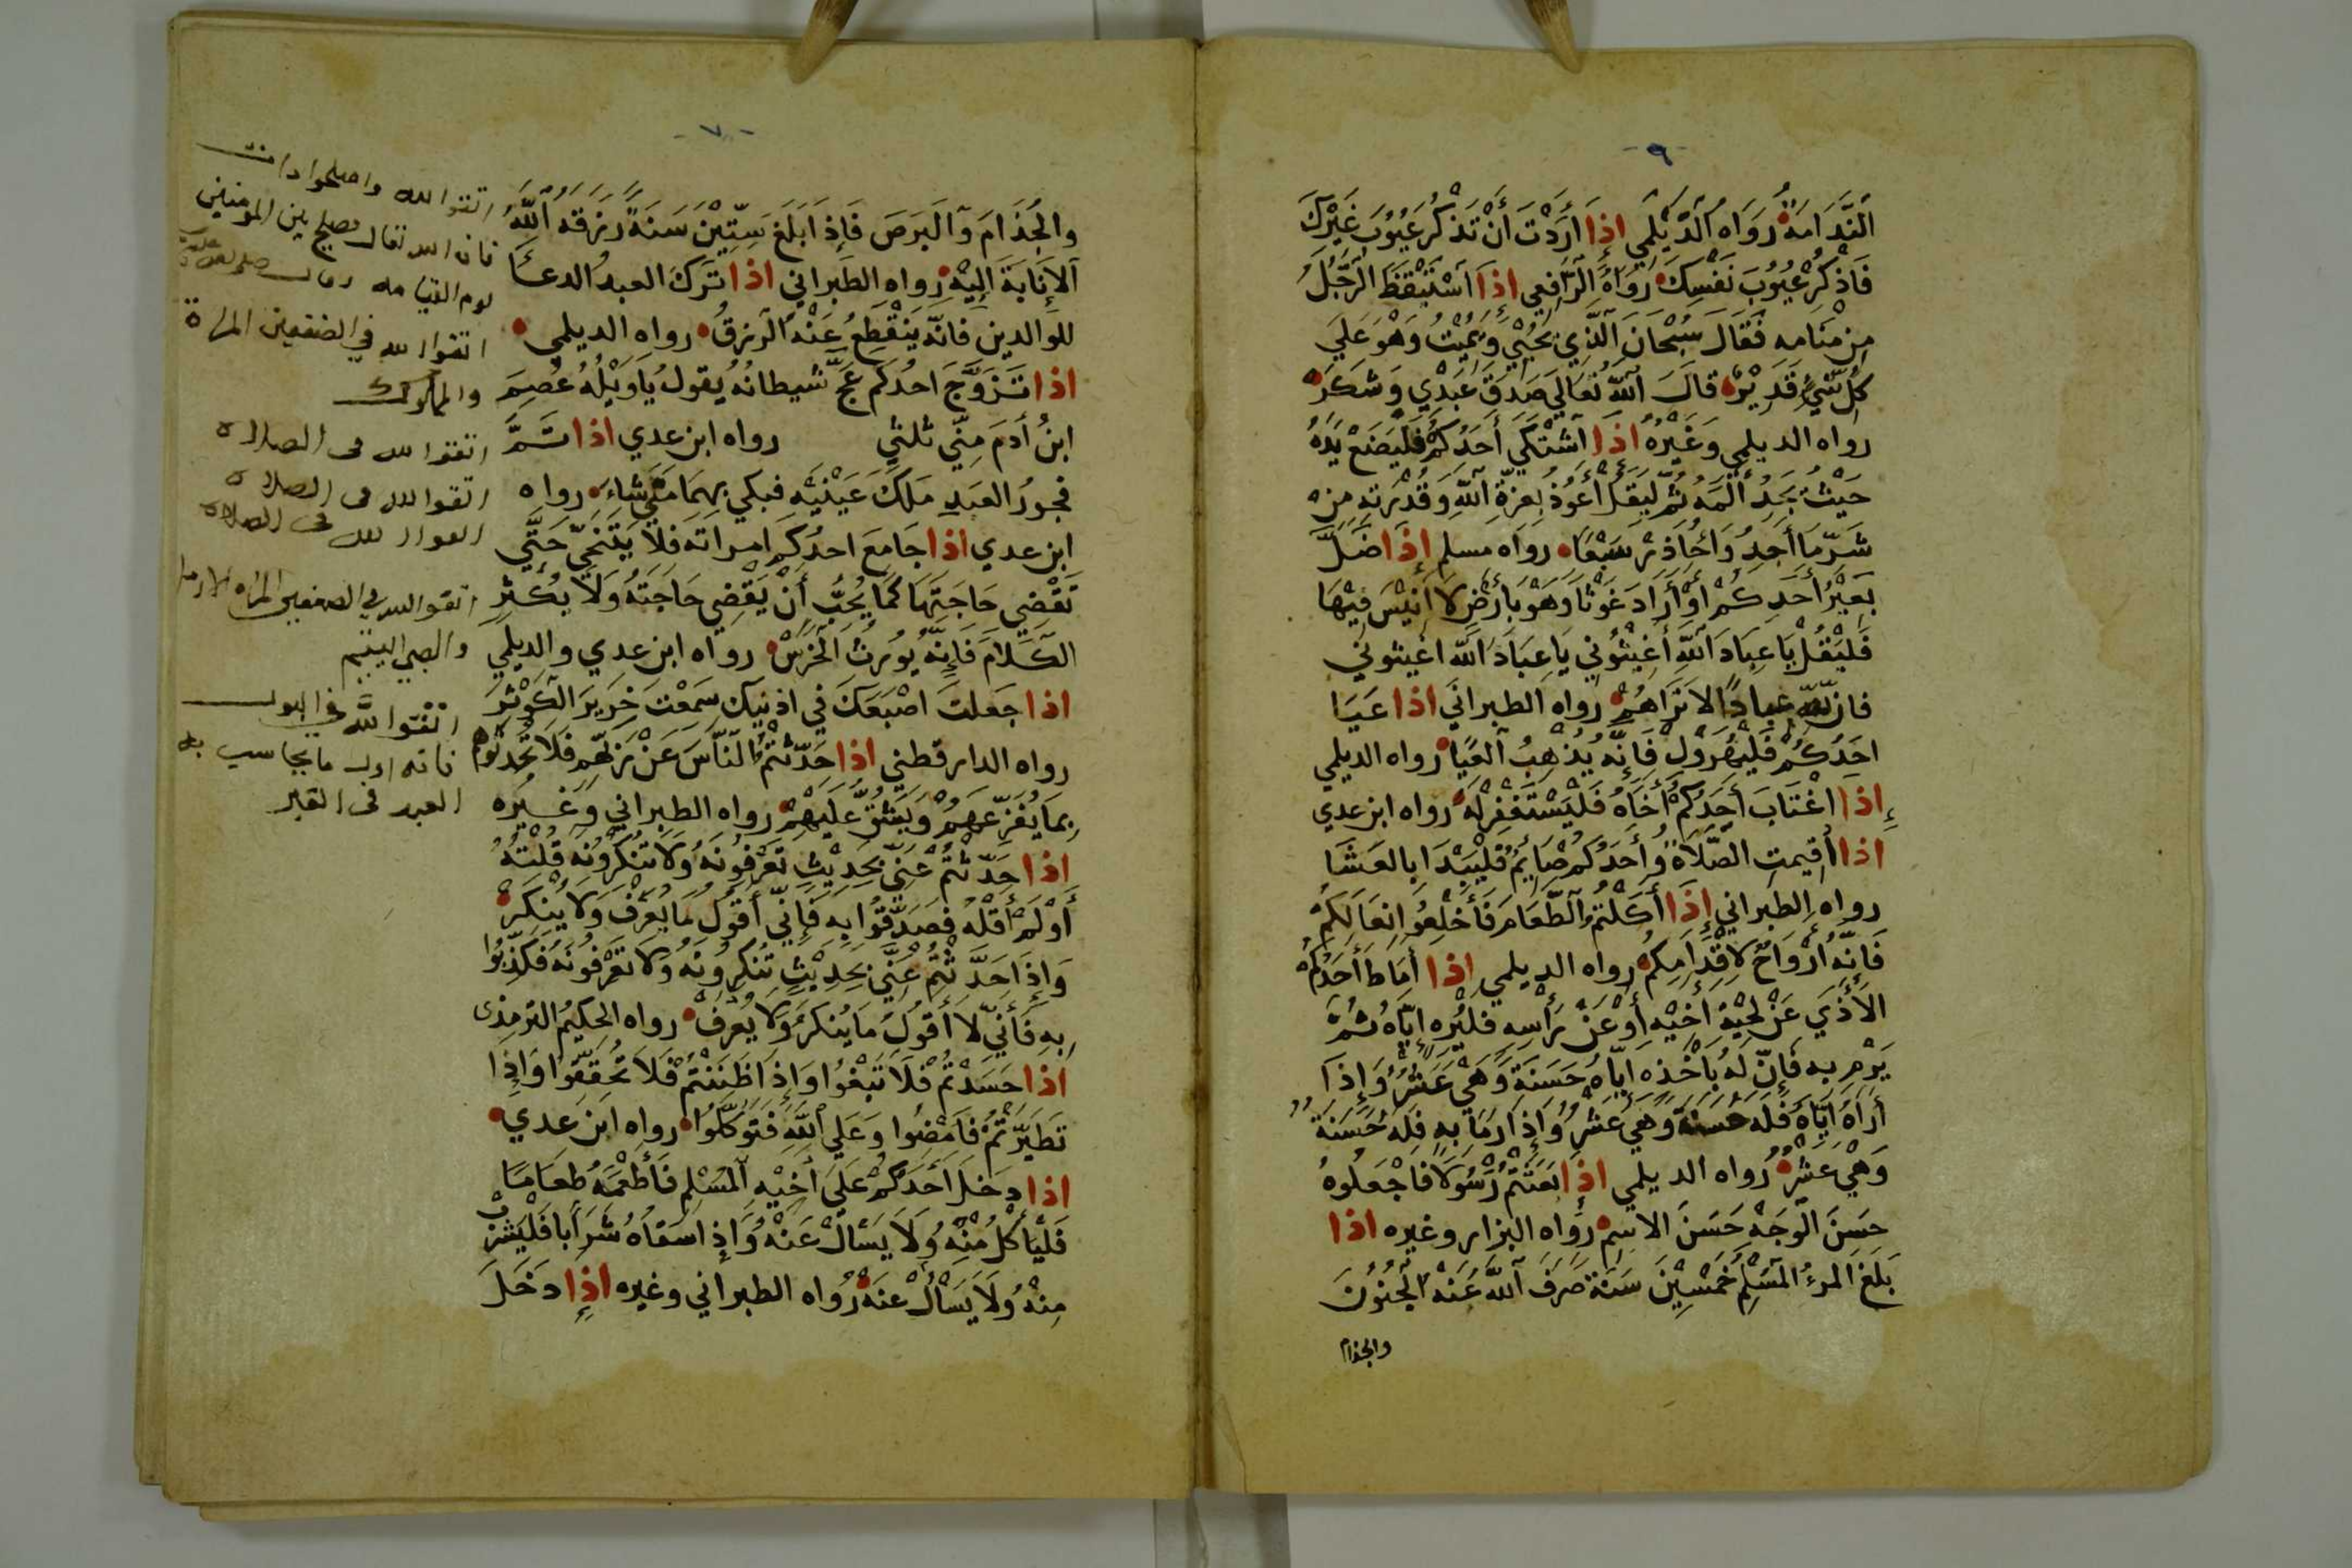 - ٩ -
اَلنَّدَامَةُ رَوَاهُ الدَّيْلَمِي إِذَا أَرَدْتَ أَنْ تَذْكُرَ عُيُوبَ غَيْرِكَ
فَاذْكُرْ عُيُوبَ نَفْسِكَ رَوَاهُ الرَّافِعِي إِذَا اسْتَيْقَظَ الرَّجُلُ
مِن مَنَامِه فَقَالَ سُبْحَانَ الَّذِي يُحْيِي وَيُمِيْتُ وَهُوَ عَلَي
كُلِّ شَيْءٍ قَدِيْرٌ قَالَ اللَّهُ تَعَالَي صَدَقَ عَبْدِي وَشَكَرَ
رواه الديلمي وَغَيْرُهُ اذَا اشْتَكَي أَحَدُكُمْ فَلْيَضَعْ يَدَهُ
حَيْثُ يَجِدُ أَلَمَهُ ثُمَّ لِيَقُلْ أَعُوْذُ بِعِزَّةِ اللَّهِ وَقُدْرَتِهِ مِنْ
شَرِّ مَا أَجِدُ وَأُحَاذِرُ سَبْعًا رواه مسلم إِذَا ضَلَّ
بَعِيْرُ أَحَدِكُمْ أَوْ أَرَادَ غَوْثًا وَهُوَ بِأَرْضٍ لَا أَنِيْسَ فِيْهَا
فَلْيَقُلْ يَا عِبَادَ اللَّهِ أَغِيْثُوْنِي يَا عِبَادَ اللَّه اغيثوني
فان لله عبادًا لا تَرَاهُمْ رواه الطبراني اذا عَيَا
احَدُكُمْ فَلْيُهَرْوِلْ فَإِنَّهُ يُذْهِبُ العَيَا رواه الديلمي
إِذَا اغْتَابَ أَحَدُكُمْ أَخَاهُ فَلْيَسْتَغْفِرْ لَهُ رواه ابن عدي
اذا أُقيمتِ الصَّلَاةُ وَأَحَدُكُمْ صَايِمٌ فَلْيَبْدَا بالعَشَا
رواه الطبراني إِذَا أَكَلْتُمُ الطَّعَامَ فَأَخْلِعُوْا نِعَالَكُمْ
فَإِنَّهُ أَرْوَاحٌ لِأَقْدَامِكُمْ رواه الديلمي اذا أَمَاطَ أَحَدُكُمْ
الأَذَي عَنْ لِحْيَةِ أَخِيْهِ أَوْ عَنْ رَأْسِهِ فليُرِهِ إِيَّاهُ ثُمَّ
يَرْمِ بِهِ فَإِنَّ لَهُ بِأَخْذِهِ إِيَّاهُ حَسَنَةً وَهْيَ عَشْرٌ وَإِذَا
أَرَاهُ إِيَّاهُ فَلَهُ حَسَنَةٌ وَهْيَ عَشْرٌ وَإِذَا رَمَا بِهِ فَلَهُ حَسَنَةٌ
وَهْيَ عَشْرٌ رُواه الديلمي اذا بَعَثْتُمْ رَسُوْلًا فَاجْعَلُوهُ
حَسَنَ الْوَجْهِ حَسَنَ الاسمِ رواه البزار وغيره اذا
بَلَغَ المرءُ المُسْلِمُ خَمْسِيْنَ سَنَةً صَرَفَ اللَّهُ عَنْهُ الْجُنُوْنَ
والجذام
- ٧ -
والْجُذَامَ وَالْبَرَصَ فَإِذَا بَلَغَ سِتِّيْنَ سَنَةً رَزَقَهُ اللَّهُ
اَلاِنَابَةَ إِلَيْهِ رِواه الطَبراني اذا تَرَكَ العبدُ الدعَا
للوالدين فانَّه يَنْقَطِعُ عَنْهُ الرِّزقُ رواه الديلمي
اذا تَزَوَّجَ احدُكُم عَجَّ شيطانُهُ يقولُ يَا وَيْلَهُ عُصِمَ
ابنُ أَدَمَ مِنِّي ثلثي رواه ابن عدي اذا تَمَّ
فجورُ العَبدِ مَلَكَ عَيْنَيْهِ فبكي بِهِمَا مَتَي شاءَ رواه
ابن عدي اذا جَامَعَ احدُكم امراته فَلاَ يَتَنَحَّي حَتَّي
تَقْضِي حَاجَتَهَا كَمَا يُحِبُّ أَنْ يَقْضِي حَاجَتَهُ وَلَا يُكْثِرِ
الكَلَامَ فَإِنَّهُ يُوْرِثُ الْخَرَسَ رواه ابن عدي والديلمي
اذا جَعلتَ اصْبَعَكَ في اذنيك سَمِعْتَ خَرِيرَ الكَوْثَرِ
رواه الدارقطني اذا حَدَّثْتُمُ النَّاسَ عَنْ رَبِّهِم فَلَا تُحَدِّثُوْهُم
بِمَا يُفَزِّعَهُمْ وَيَشُقُّ عَلَيْهِمْ رواه الطبراني وَغَيْرُه
اذا حَدَّثْتُمْ عَنِّي بِحَدِيْثٍ تَعْرِفُوْنَهُ وَلَا تُنْكِرُوْنَهُ قُلْتُهُ
أَوْ لَمْ أَقُلْهُ فَصَدِّقُوْا بِهِ فَإِنِّي أَقُوْلُ مَا يُعْرَفُ وَلَا يُنْكَرُ
وَإِذَا حَدَّثْتُمْ عَنِّي بِحَدِيْثٍ تُنْكِرُوْنَهُ وَلَا تَعْرِفُوْنَهُ فَكَذِّبُوْا
بِهِ فَأَنِّي لَا أَقُوْلُ مَا يُنْكَرُ وَلَا يُعْرَفُ رواه الحَكِيْمُ الترمِذي
اذا حَسَدْتُمْ فَلَا تَبْغُوْا وَإِذَا ظَنَنْتُمْ فَلَا تُحَقِّقُوْا وَإِذَا
تَطَيَّرْتُمْ فَامْضُوْا وَعَلَي اللَّهِ فَتَوَكَّلُوْا رواه ابن عدي
اذا دخلَ أَحَدُكُمْ عَلَي أَخِيْهِ المُسْلِمِ فَأَطْعَمَهُ طعَامًا
فَلْيَأْكُلْ مِنْهُ وَلَا يَسْأَلْ عَنْهُ وَإِذَا سَقَاهُ شَرَابًا فَلْيَشْرَبْ
مِنْهُ وَلَا يَسْأَلْ عَنْهُ رُواه الطبراني وغيره اذِا دَخَلَ
اتقوا الله واصلحوا ذات
فان الله تعالى يصلح بين المومنين
يوم القيامه
اتقوا الله في الضعفين المراة
والمملوك
اتقوا الله فى الصلاة
اتقوا الله فى الصلاة
اتقوا الله فى الصلاة
اتقوا الله في الضعفين المراه الارمله
والصبي اليتيم
اتَّقوا اللَّه في البول
فانه اول ما يحاسب به
العبد فى القبر